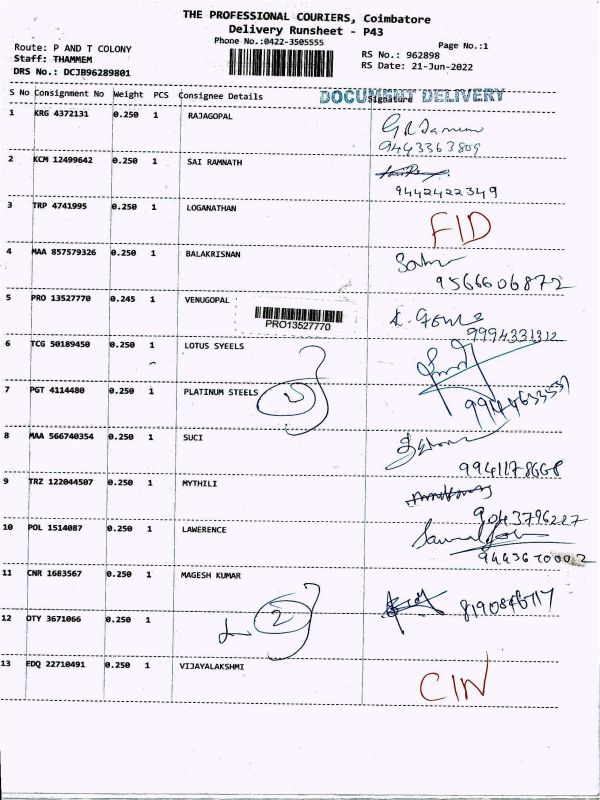 THE PROFESSIONAL COURIERS, Coimbatore
Delivery Runsheet - P43
Phone No.:0422-3505555
Page No.:1
Route: P AND T COLONY
Staff: THAMMEM
DRS No.: DCJB96289801
RS No.: 962898
RS Date: 21-Jun-2022
S No Consignment No Weight PCS Consignee Details Signature
DOCUMENT DELIVERY
1 KRG 4372131 0.250 1 RAJAGOPAL
9443363809
2 KCM 12499642 0.250 1 SAI RAMNATH
9442422349
3 TRP 4741995 0.250 1 LOGANATHAN
FID
4 MAA 857579326 0.250 1 BALAKRISNAN
9566606872
5 PRO 13527770 0.245 1 VENUGOPAL
PRO13527770
9994331312
6 TCG 50189450 0.250 1 LOTUS SYEELS
7 PGT 4114480 0.250 1 PLATINUM STEELS
8 MAA 566740354 0.250 1 SUCI
9941178668
9 TRZ 122044507 0.250 1 MYTHILI
9043796227
10 POL 1514087 0.250 1 LAWERENCE
11 CNR 1683567 0.250 1 MAGESH KUMAR
2
12 OTY 3671066 0.250 1
13 EDQ 22710491 0.250 1 VIJAYALAKSHMI
CIN